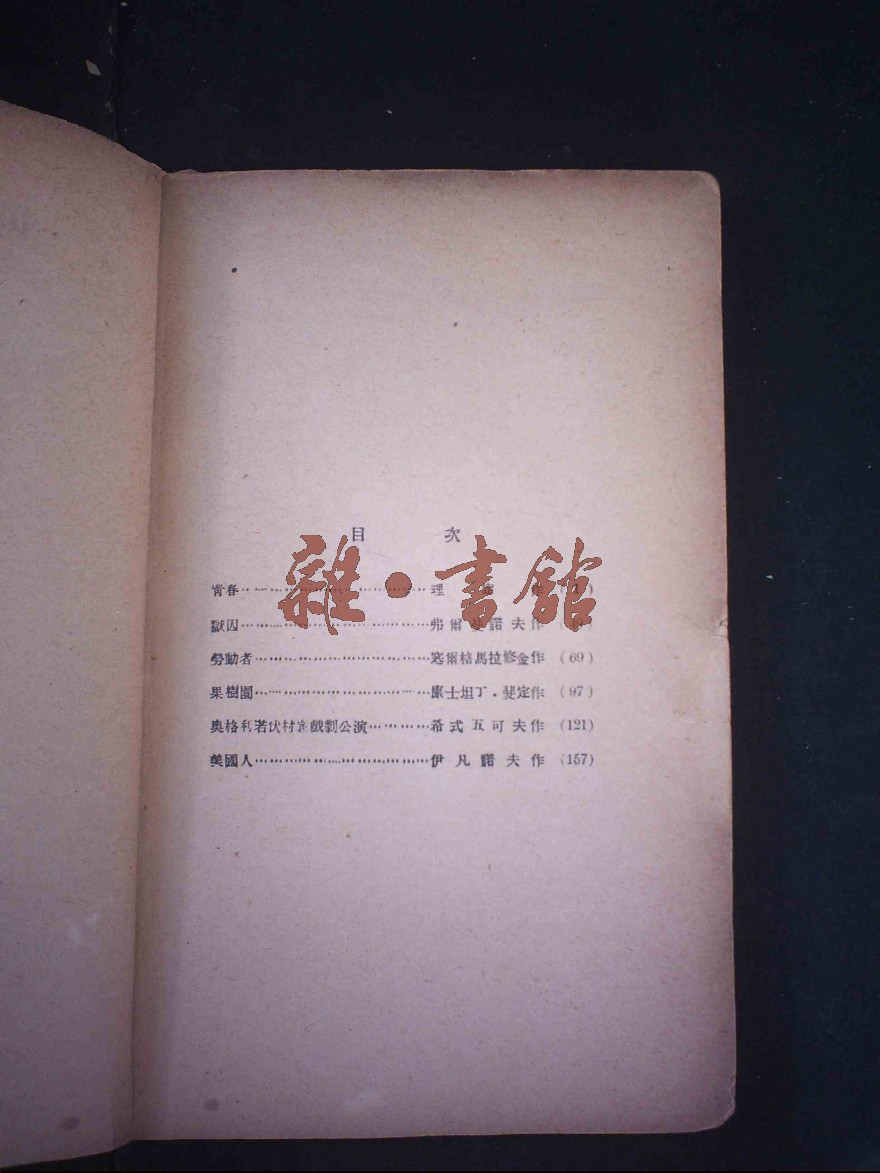 目 次
雜·書館
青春……………………………理 作
獄囚……………………………弗爾曼諾夫作
勞動者……………………………塞爾格馬拉修金作 (69)
果樹園……………………………康士坦丁·斐定作 (97)
奧格利若伏村 戲劇公演…………希式五可夫作 (121)
美國人……………………………伊凡諾夫作 (157)